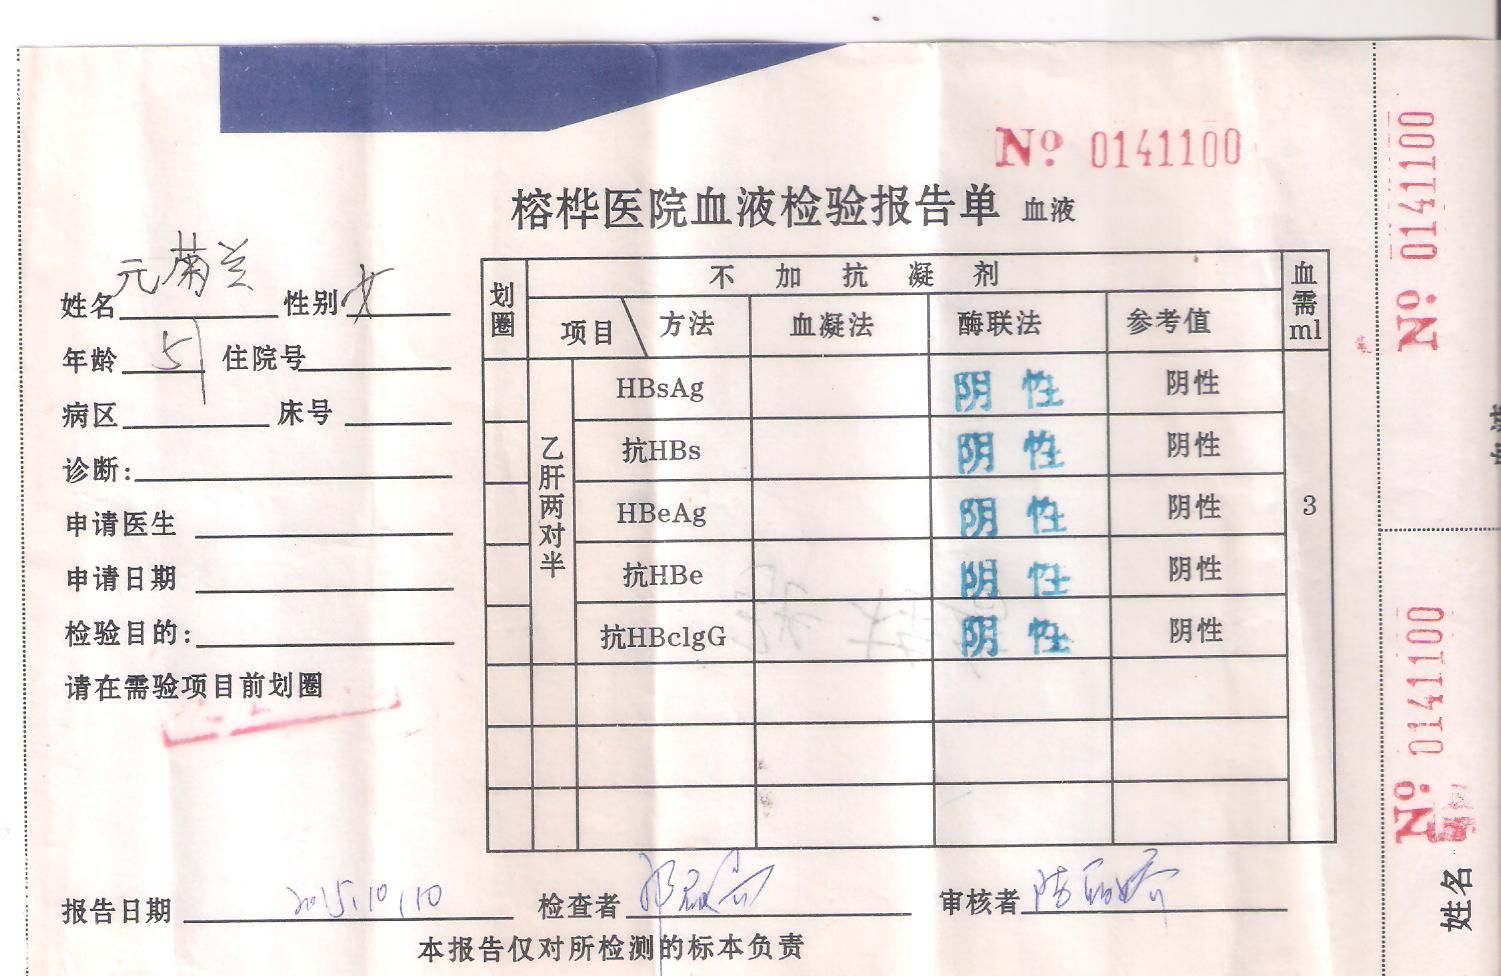 No 0141100
榕桦医院血液检验报告单 血液
姓名 元菊兰 性别 女
年龄 51 住院号
病区 床号
诊断:
申请医生
申请日期
检验目的:
请在需验项目前划圈
划圈 不加抗凝剂 血需ml
项目 方法 血凝法 酶联法 参考值
乙肝两对半
HBsAg 阴性 阴性
抗HBs 阴性 阴性
HBeAg 阴性 阴性
抗HBe 阴性 阴性
抗HBclgG 阴性 阴性
3
报告日期 2015.10.10 检查者 审核者
本报告仅对所检测的标本负责
No 0141100
No 0141100
姓名